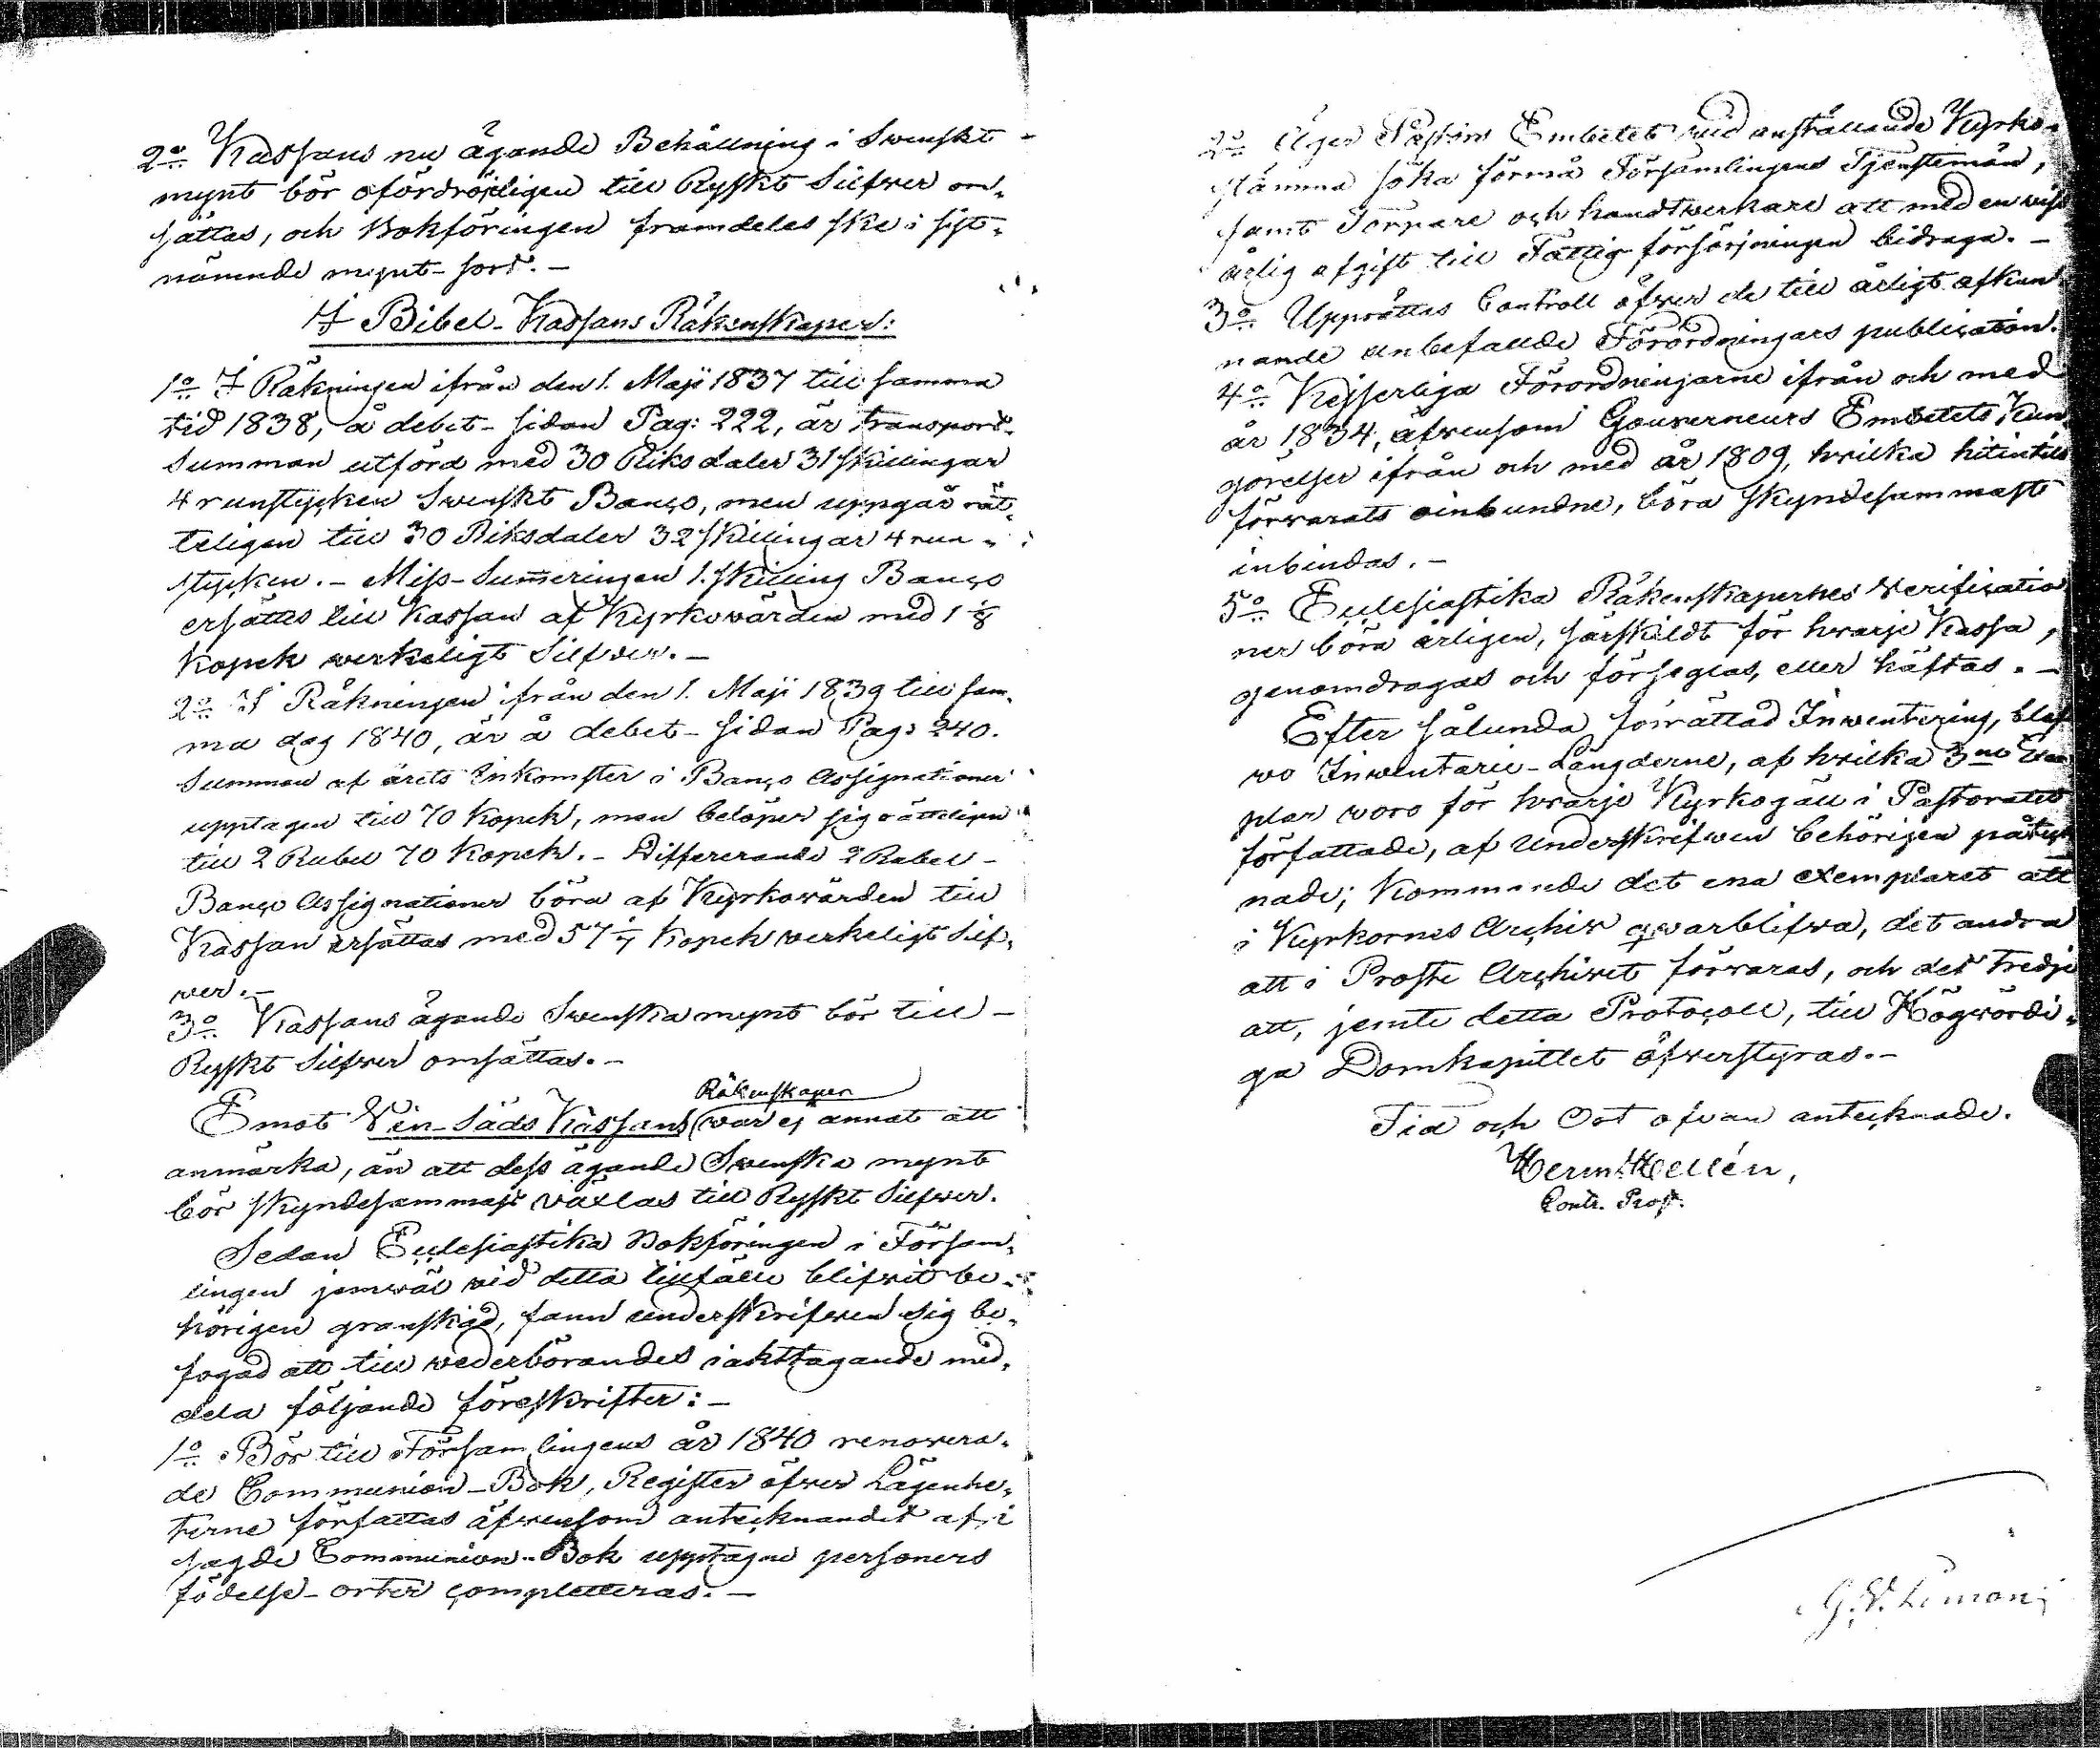 2:o Kassans nu ägande Behållning i Swenskt
mynt bör ofördröjligen till Ryskt Silfwer om-
sättas, och Bokföringen framdeles ske i sist-
nämnde mynt-sort. –
I Bibel-Kassans Räkenskaper:
1:o I Räkningen ifrån den 1. Maji 1837 till samma
tid 1838, å debet-sidan Pag: 222, är transport-
Summan utförd med 30 Riksdaler 31 skillingar
4 runstycken Swenskt Banco, men uppgår rät-
teligen till 30 Riksdaler 32 skillingar 4 run-
stycken. – Miss-Summeringen 1. skilling Banco
ersättes till Kassan af Kyrkowärden med 1 1/8
Kopek werkeligt Silfwer. –
2:o I Räkningen ifrån den 1. Maji 1839 till sam-
ma dag 1840, är å debet-sidan Pag: 240.
Summan af årets Inkomster i Banco Assignationer
upptagen till 70 Kopek, men belöper sig rätteligen
till 2 Rubel 70 Kopek. – Differerande 2 Rubel –
Banco Assignationer böra af Kyrkowärden till
Kassan ersättas med 57 1/7 Kopek werkeligt Silf-
wer. –
3:o Kassans ägande Swenska mynt bör till –
Ryskt Silfwer omsättas. –
Räkenskaper
Emot Vin-Säds Kassans war ej annat att
anmärka, än att dess ägande Swenska mynt
bör skyndesammast växlas till Ryskt Silfwer.
Sedan Ecclesiastika Bokföringen i Försam-
lingen jemwäl wid detta tillfälle blifwit be-
hörigen granskad, fann underskrifwen sig be-
fogad att till wederbörandes iakttagande med-
dela följande föreskrifter: –
1:o Bör till Församlingens år 1840 renovera-
de Communion-Bok, Register öfwer Lägenhe-
terne författas äfwensom antecknandet af i
sagde Communion-Bok upptagne personers
födelse-orter completteras. –
2:o Äger Pastors Embetet wid anställande Kyrko-
stämma söka förmå Församlingens Tjenstemän,
samt Torpare och handtwerkare att med en wiss
årlig afgift till Fattig-försörjningen bidraga. –
3:o Upprättas Controll öfwer de till årligt afkun-
nande anbefallde Förordningars publication.
4:o Kejserliga Förordningarne ifrån och med
år 1834, äfwensom Gouverneurs Embetets Kun-
görelser ifrån och med år 1809, hwilka hitintills
förwarats oinbundne, böra skyndesammast
inbindas. –
5:o Ecclesiastika Räkenskapernes Verificatio
ner böra årligen, särskildt för hwarje Kassa,
genomdragas och förseglas, eller häftas. –
Efter sålunda förrättad Inwentering, blef
wo Inwentarie-Längderne, af hwilka 3:ne Exem
plar woro för hwarje Kyrkogäll i Pastoratet
författade, af Underskrifwen behörigen påteck
nade; Kommande det ena exemplaret att
i Kyrkornes Archiv qwarblifwa, det andra
att i Proste Archivet förwaras, och det tredje
att, jemte detta Protocoll, till Högwördi-
ga Domkapitlet öfwerstyras. –
Tid och Ort ofwan antecknade.
Herm: Hellén,
Contr. Prost.